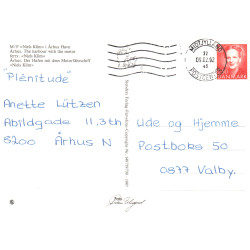 M/F «Niels Klim» i Århus Havn
Århus. The harbour with the motor
ferry «Niels Klim»
Århus. Der Hafen mit dem Motorfährschiff
«Niels Klim»
"Plénitude"
Anette Lützen
Abildgade 11.3th
8200 Århus N
Ude og Hjemme
Postboks 50
0877 Valby.
DANMARK